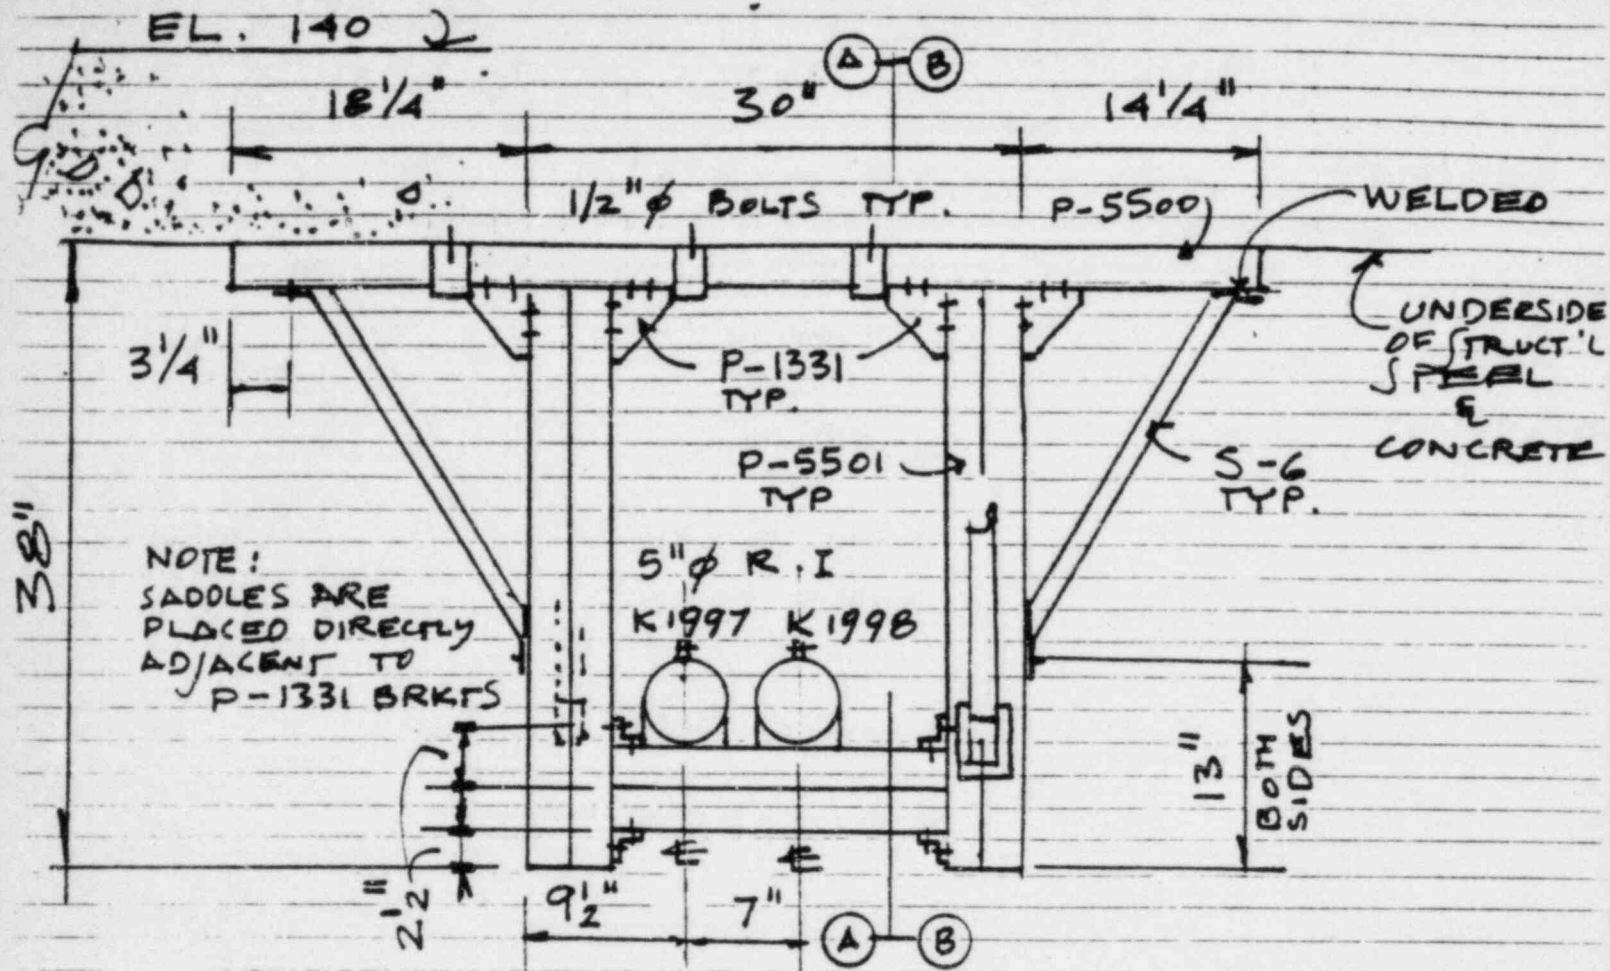 EL. 140
A B
18 1/4" 30" 14 1/4"
1/2" ϕ BOLTS TYP. P-5500 WELDED
3 1/4"
P-1331
TYP.
UNDERSIDE
OF STRUCT'L
STEEL
&
CONCRETE
P-5501
TYP
S-6
TYP.
38"
NOTE:
SADDLES ARE
PLACED DIRECTLY
ADJACENT TO
P-1331 BRKTS
5" ϕ R.I
K1997 K1998
13"
BOTH
SIDES
2 1/2"
9 1/2" 7" A B